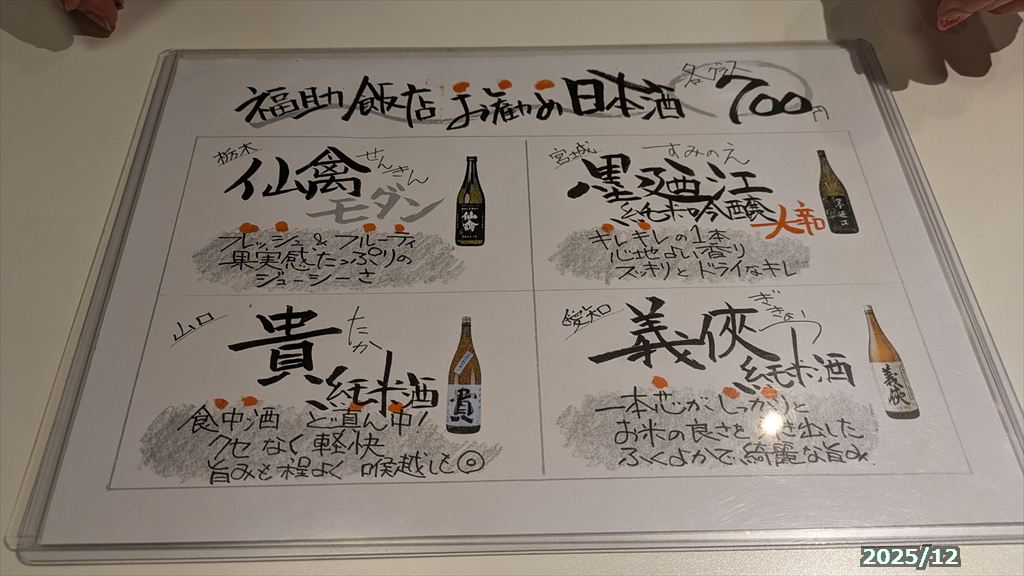 福助飯店 お勧め日本酒 各グラス 700円
栃木
仙禽 せんきん
モダン
フレッシュ&フルーティ
果実感たっぷりの
ジューシーさ
宮城
墨廼江 すみのえ
純米吟醸 大辛
キレキレの1本
心地よい香り
スッキリとドライなキレ
山口
貴 たか
純米酒
食中酒 ど真ん中!
クセなく軽快
旨みも程よく 喉越し◎
愛知
義侠 ぎきょう
純米酒
一本芯がしっかりと
お米の良さを き出した
ふくよかで、綺麗な旨み
2025/12